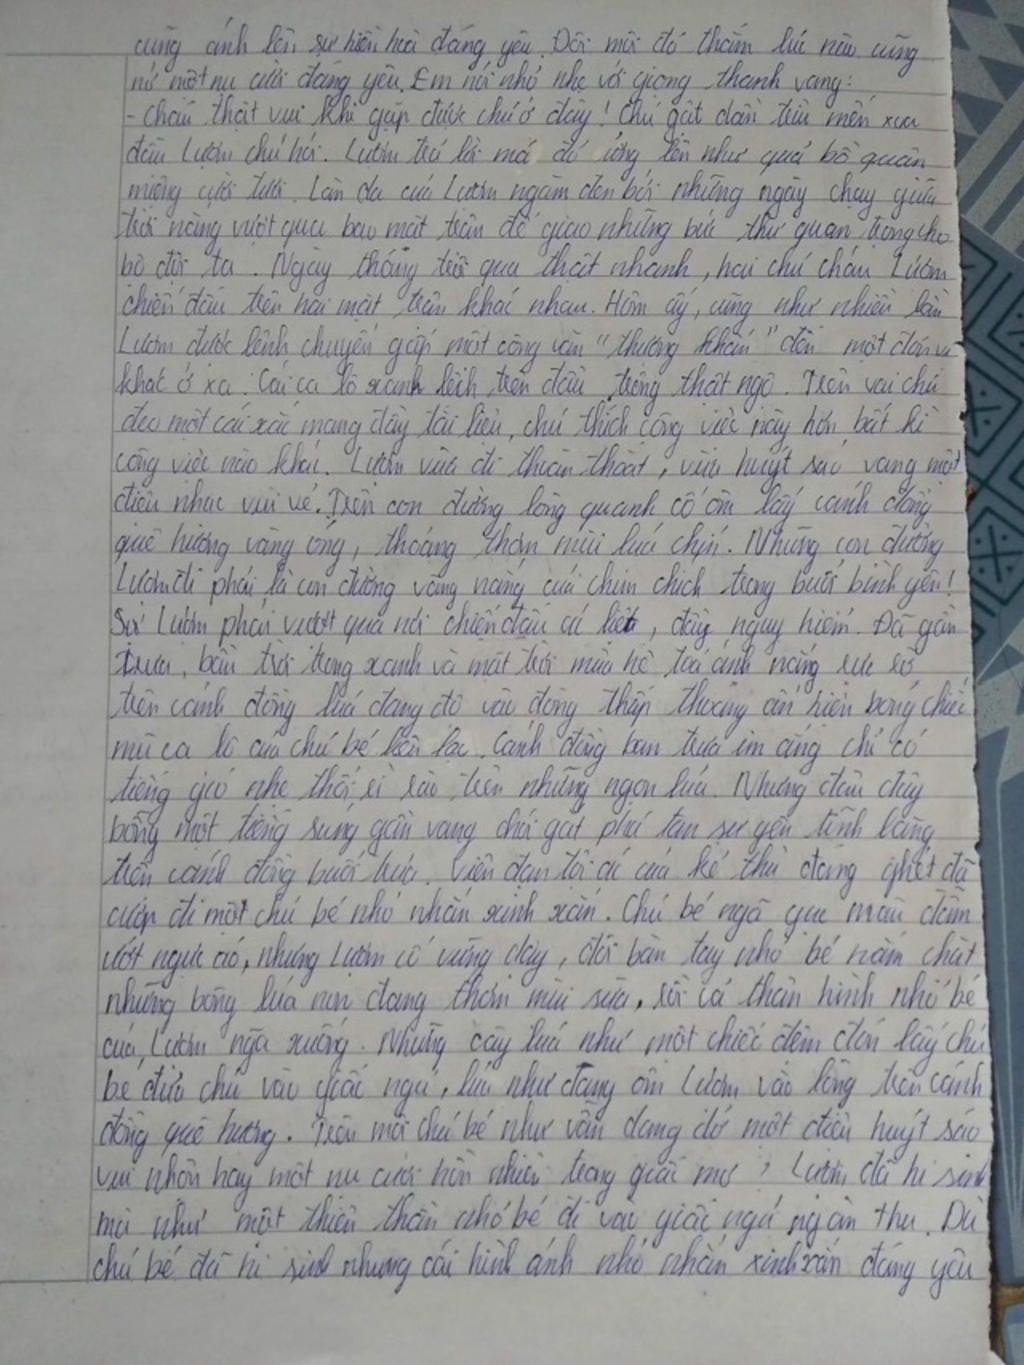 cũng ánh lên sự hiền hoà đáng yêu. Đôi môi đỏ thắm lúc nào cũng
nở một nụ cười đáng yêu. Em nói nhỏ nhẹ với giọng thanh vang:
- Cháu thật vui khi gặp được chú ở đây! Chú gật đầu trìu mến xoa
đầu Lượm chú hỏi. Lượm trả lời má đỏ ửng lên như quả bồ quân
miệng cười tươi. Làn da của Lượm ngăm đen bởi những ngày chạy giữa
trời nắng vượt qua bao mặt trận để giao những bức thư quan trọng cho
bộ đội ta. Ngày tháng trôi qua thật nhanh, hai chú cháu Lượm
chiến đấu trên hai mặt trận khác nhau. Hôm ấy, cũng như nhiều lần
Lượm được lệnh chuyển gấp một công văn "thượng khẩn" đến một đơn vị
khác ở xa. Cái ca lô xanh lệch trên đầu trông thật ngộ. Trên vai chú
đeo một cái xắc mang đầy tài liệu, chú thích công việc này hơn bất kì
công việc nào khác. Lượm vừa đi thoăn thoắt, vừa huýt sáo vang một
điệu nhạc vui vẻ. Trên con đường lòng quanh cố ôm lấy cánh đồng
quê hương vàng óng, thoảng thơm mùi lúa chín. Những con đường
Lượm đi phải là con đường vàng nắng của chim chích trong buổi bình yên!
Sợ Lượm phải vượt qua nơi chiến đấu ác liệt, đầy nguy hiểm. Đã gần
trưa, bầu trời trong xanh và mặt trời mùa hè toả ánh nắng rực rỡ
trên cánh đồng lúa đang độ vào đòng thấp thoáng ẩn hiện bóng chiếc
mũ ca lô của chú bé liên lạc. Cánh đồng ban trưa im ắng chỉ có
tiếng gió nhẹ thổi rì rào trên những ngọn lúa. Nhưng đâu đây
bỗng một tiếng súng gần vang chát phá tan sự yên tĩnh lặng
trên cánh đồng buổi trưa. Viên đạn tội ác của kẻ thù đáng ghét đã
cướp đi một chú bé nhỏ nhắn xinh xắn. Chú bé ngã gục máu đẫm
ướt ngực áo, nhưng Lượm cố vùng dậy, đôi bàn tay nhỏ bé nắm chặt
những bông lúa non đang thơm mùi sữa, rồi cả thân hình nhỏ bé
của Lượm ngã xuống. Những cây lúa như một chiếc đệm đón lấy chú
bé đưa chú vào giấc ngủ, lúa như đang ôm Lượm vào lòng trên cánh
đồng quê hương. Trên môi chú bé như vẫn đang dở một điệu huýt sáo
vui nhộn hay một nụ cười hồn nhiên trong giấc mơ, Lượm đã hi sinh
mà như một thiên thần nhỏ bé đi vào giấc ngủ ngàn thu. Dù
chú bé đã hi sinh nhưng cái hình ảnh nhỏ nhắn xinh xắn đáng yêu